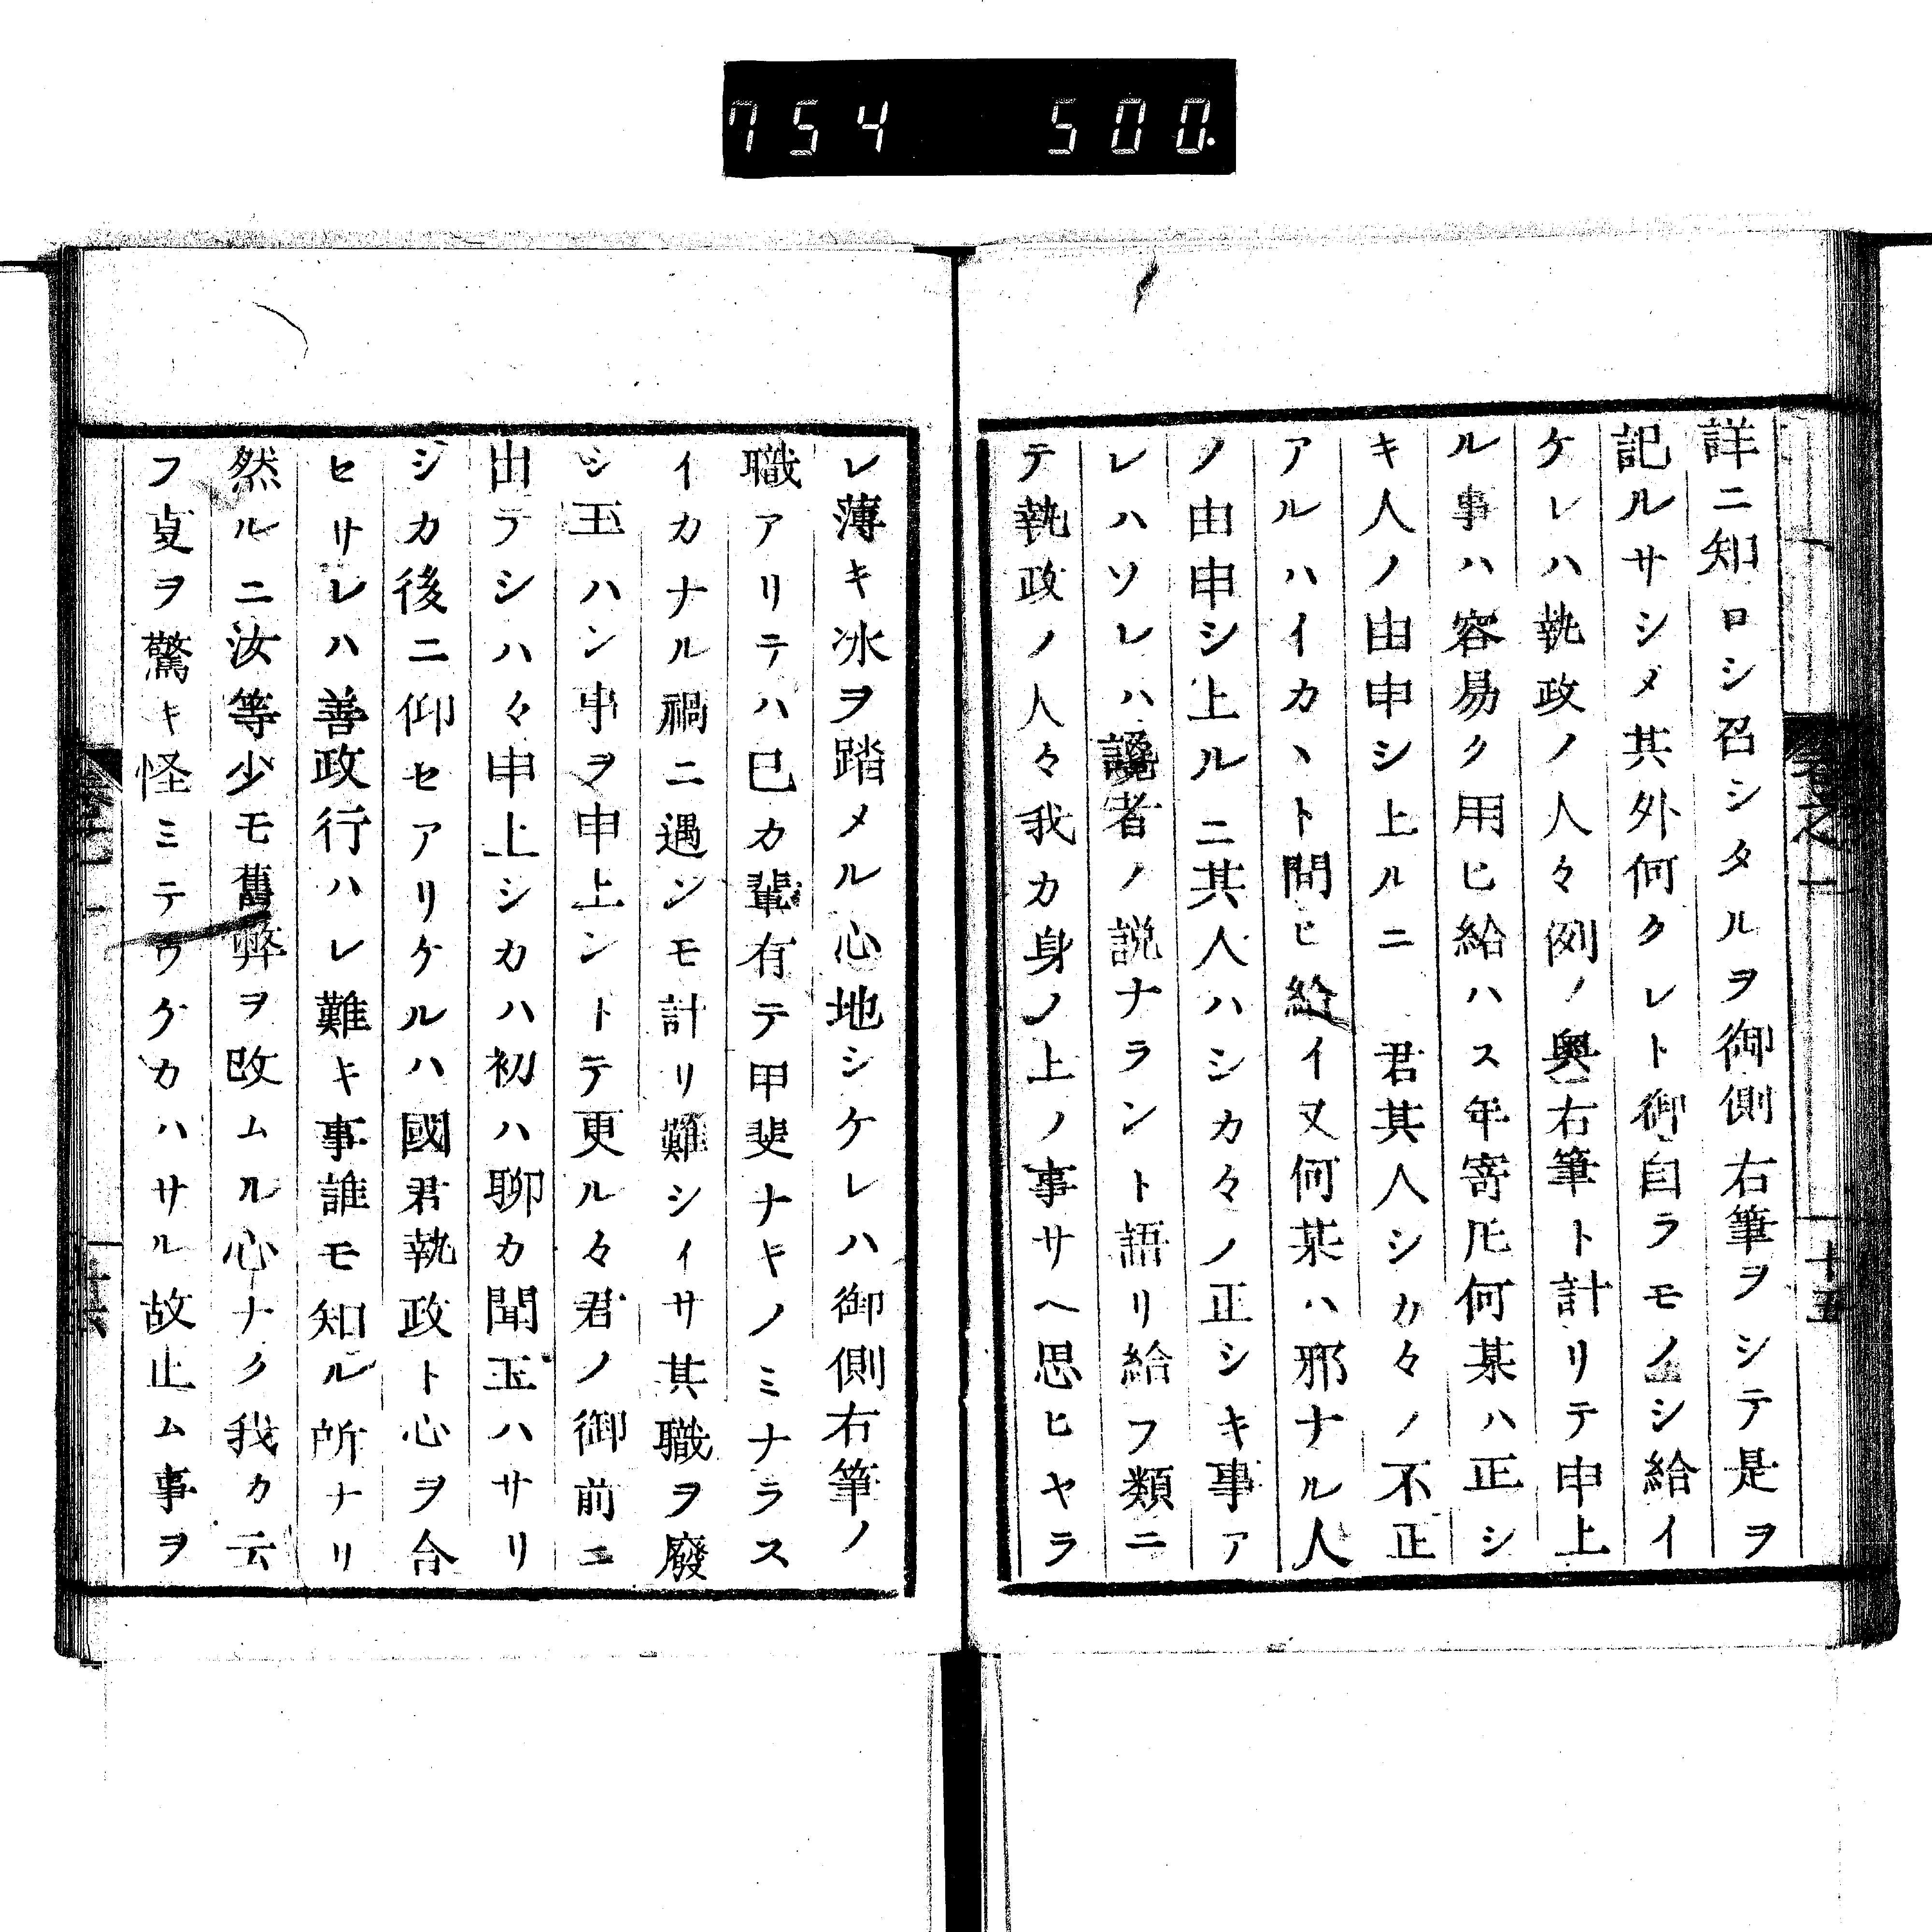 754 500.
詳ニ知ロシ召シタルヲ御側右筆ヲシテ是ヲ
記ルサシメ其外何クレト御自ラモノシ給イ
ケレハ執政ノ人々例ノ奥右筆ト計リテ申上
ル事ハ容易ク用ヒ給ハス年寄𪜈何某ハ正シ
キ人ノ由申シ上ルニ 君其人シカ々ノ不正
アルハイカヽト問ヒ給イ又何某ハ邪ナル人
ノ由申シ上ルニ其人ハシカ々ノ正シキ事ア
レハソレハ讒者ノ説ナラント語リ給フ類ニ
テ執政ノ人々我カ身ノ上ノ事サヘ思ヒヤラ
十五
レ薄キ冰ヲ踏メル心地シケレハ御側右筆ノ
職アリテハ已カ輩有テ甲斐ナキノミナラス
イカナル禍ニ遇ンモ計リ難シイサ其職ヲ廢
シ玉ハン事ヲ申上ントテ更ル々君ノ御前ニ
出テシハ々申上シカハ初ハ聊カ聞玉ハサリ
シカ後ニ仰セアリケルハ國君執政ト心ヲ合
セサレハ善政行ハレ難キ事誰モ知ル所ナリ
然ルニ汝等少モ舊弊ヲ改ムル心ナク我カ云
フ叓ヲ驚キ怪ミテウケカハサル故止ム事ヲ